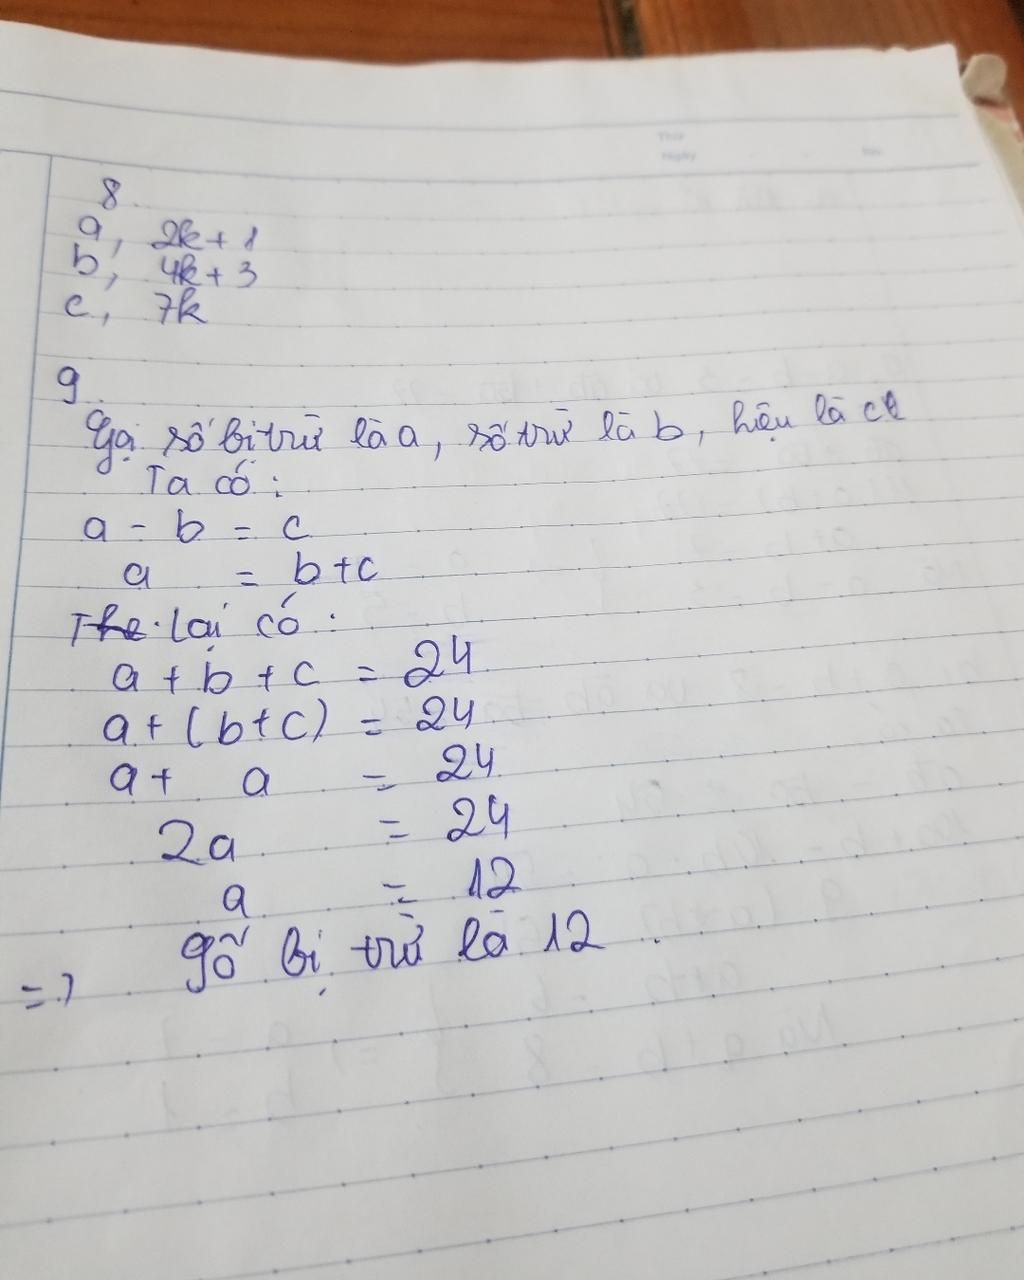 Thứ
Ngày
8.
a, 2k + 1
b, 4k + 3
c, 7k
9.
Gọi số bị trừ là a, số trừ là b, hiệu là c
Ta có:
a - b = c
a = b+c
lại có:
a + b + c = 24
a + (b+c) = 24
a + a = 24
2a = 24
a = 12
=> Số bị trừ là 12.